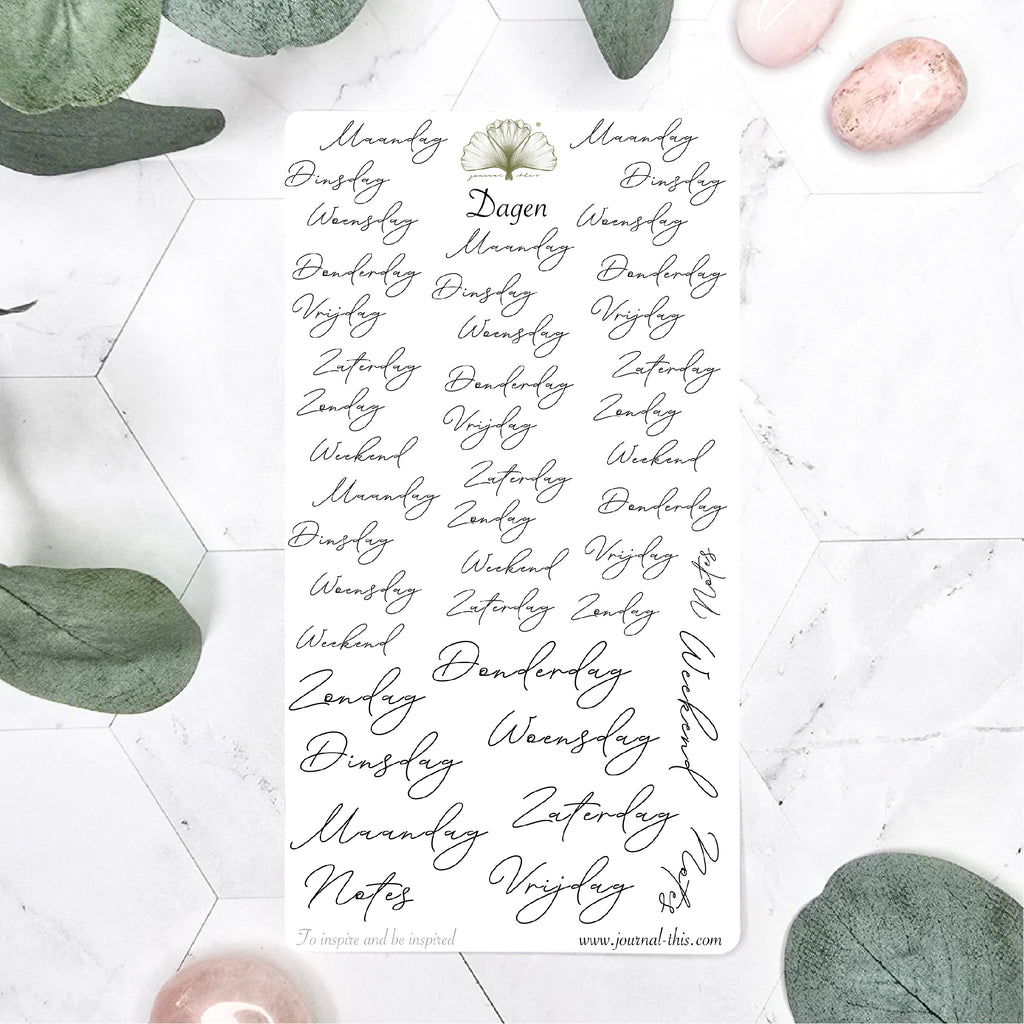 Maandag
Dinsdag
Woensdag
Donderdag
Vrijdag
Zaterdag
Zondag
Weekend
Maandag
Dinsdag
Woensdag
Weekend
journal this
Dagen
Maandag
Dinsdag
Woensdag
Donderdag
Vrijdag
Zaterdag
Zondag
Weekend
Zaterdag
Maandag
Dinsdag
Woensdag
Donderdag
Vrijdag
Zaterdag
Zondag
Weekend
Donderdag
Vrijdag
Zondag
Notes
Weekend
Notes
Donderdag
Zondag
Woensdag
Dinsdag
Zaterdag
Maandag
Vrijdag
Notes
To inspire and be inspired
www.journal-this.com